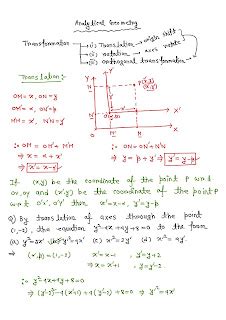 Analytical Geometry
Transformation → (i) Translation → origin shift
→ (ii) rotation → axes rotate
→ (iii) orthogonal transformation
Translation :-
OM = x, ON = y
OM' = α, ON' = β
MM' = x', N'N = y'
∴ OM = OM' + M'M
⇒ x = α + x'
⇒ x' = x - α
∴ ON = ON' + N'N
⇒ y = β + y' ⇒ y' = y - β
If (x,y) be the coordinate of the point P w.r.t
ox, oy and (x',y') be the coordinate of the point P
w.r.t o'x', o'y' then x' = x - α, y' = y - β
Q) By translation of axes through the point
(1, -2), the equation y² - 4x + 4y + 8 = 0 to the form
(a) y'² = 3x' (b) y'² = 4x' (c) x'² = 2y' (d) x'² = 4y'
(α, β) = (1, -2) x' = x - 1 , y' = y + 2
⇒ x = x' + 1 , y = y' - 2
∴ y² - 4x + 4y + 8 = 0
⇒ (y' - 2)² - 4(x' + 1) + 4(y' - 2) + 8 = 0 ⇒ y'² = 4x'